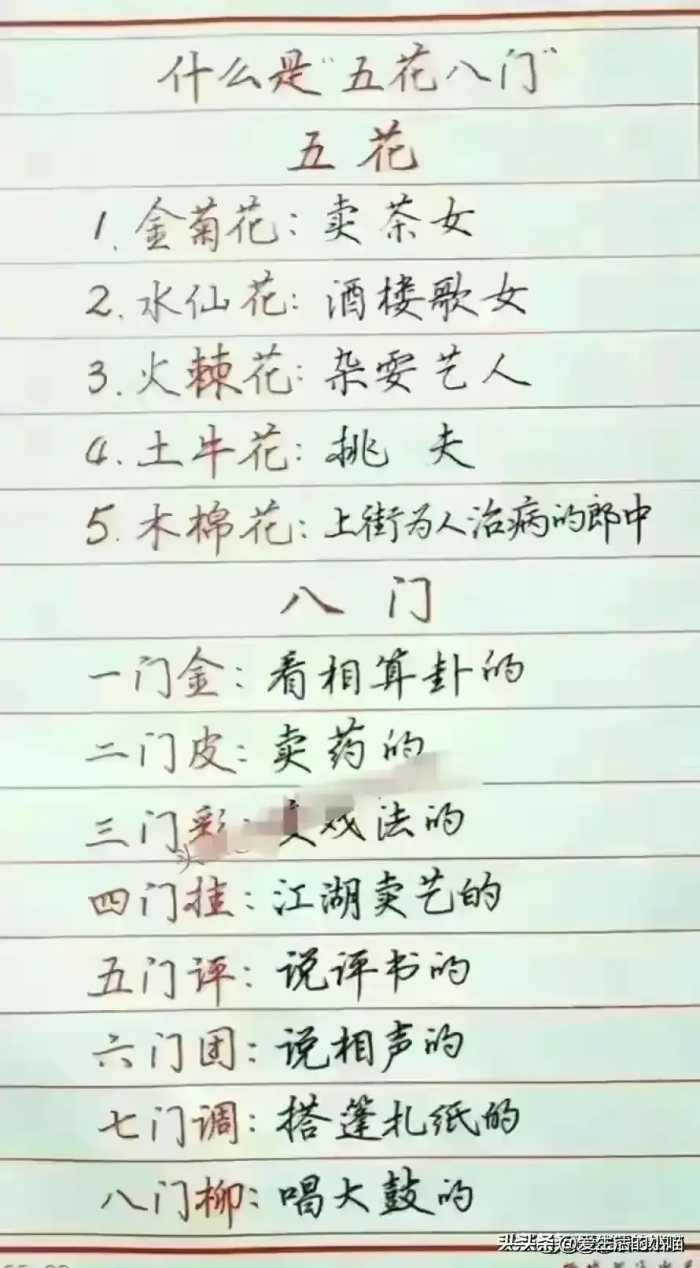 什么是“五花八门”
五花
1.金菊花：卖茶女
2.水仙花：酒楼歌女
3.火棘花：杂耍艺人
4.土牛花：挑夫
5.木棉花：上街为人治病的郎中
八门
一门金：看相算卦的
二门皮：卖药的
三门彩：戏法的
四门挂：江湖卖艺的
五门评：说评书的
六门团：说相声的
七门调：搭篷扎纸的
八门柳：唱大鼓的
头条@爱生活的小喵